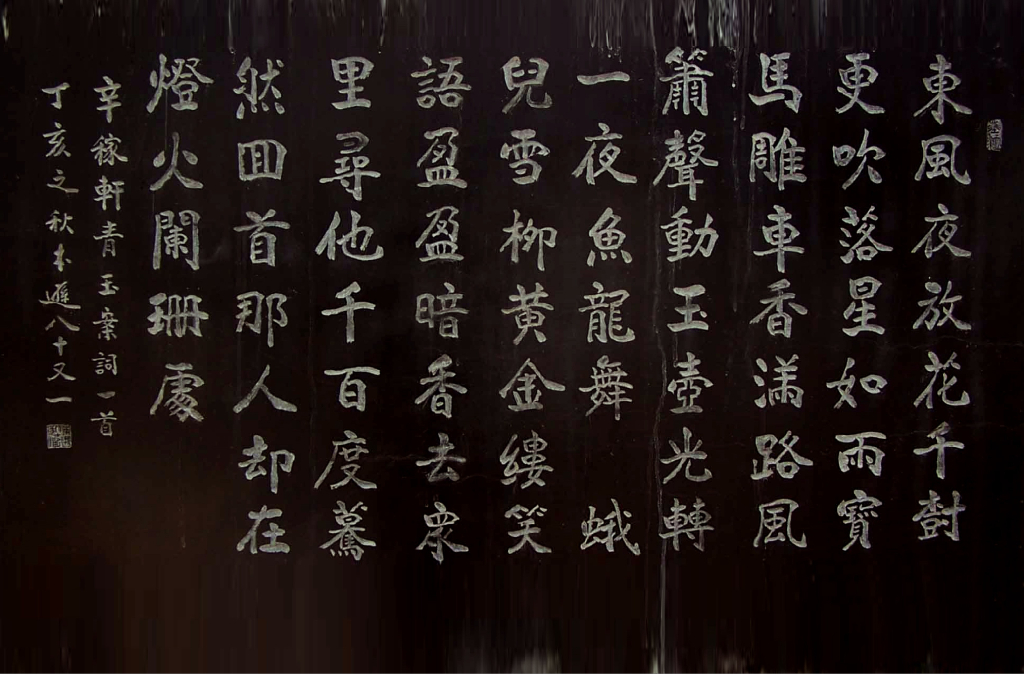 東風夜放花千對
更吹落星如雨寶
馬雕車香滿路風
簫聲動玉壺光轉
一夜魚龍舞 蛾
兒雪柳黃金縷笑
語盈盈暗香去眾
里尋他千百度驀
然回首那人却在
燈火闌珊處
辛稼軒青玉案詞一首
丁亥之秋 遯八十又一